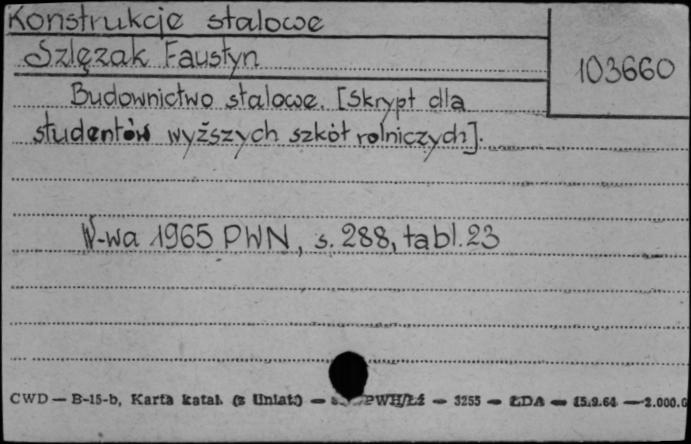 Konstrukcje stalowe
Szlęzak Faustyn
103660
Budownictwo stalowe. [Skrypt dla
studentów wyższych szkół rolniczych].
W-wa 1965 PWN, s. 288, tabl. 23
CWD — B-15-b, Karta katal. (z Uniat.) — PWH/Łź — 3255 — ŁDA — 15.9.64 — 2.000.0